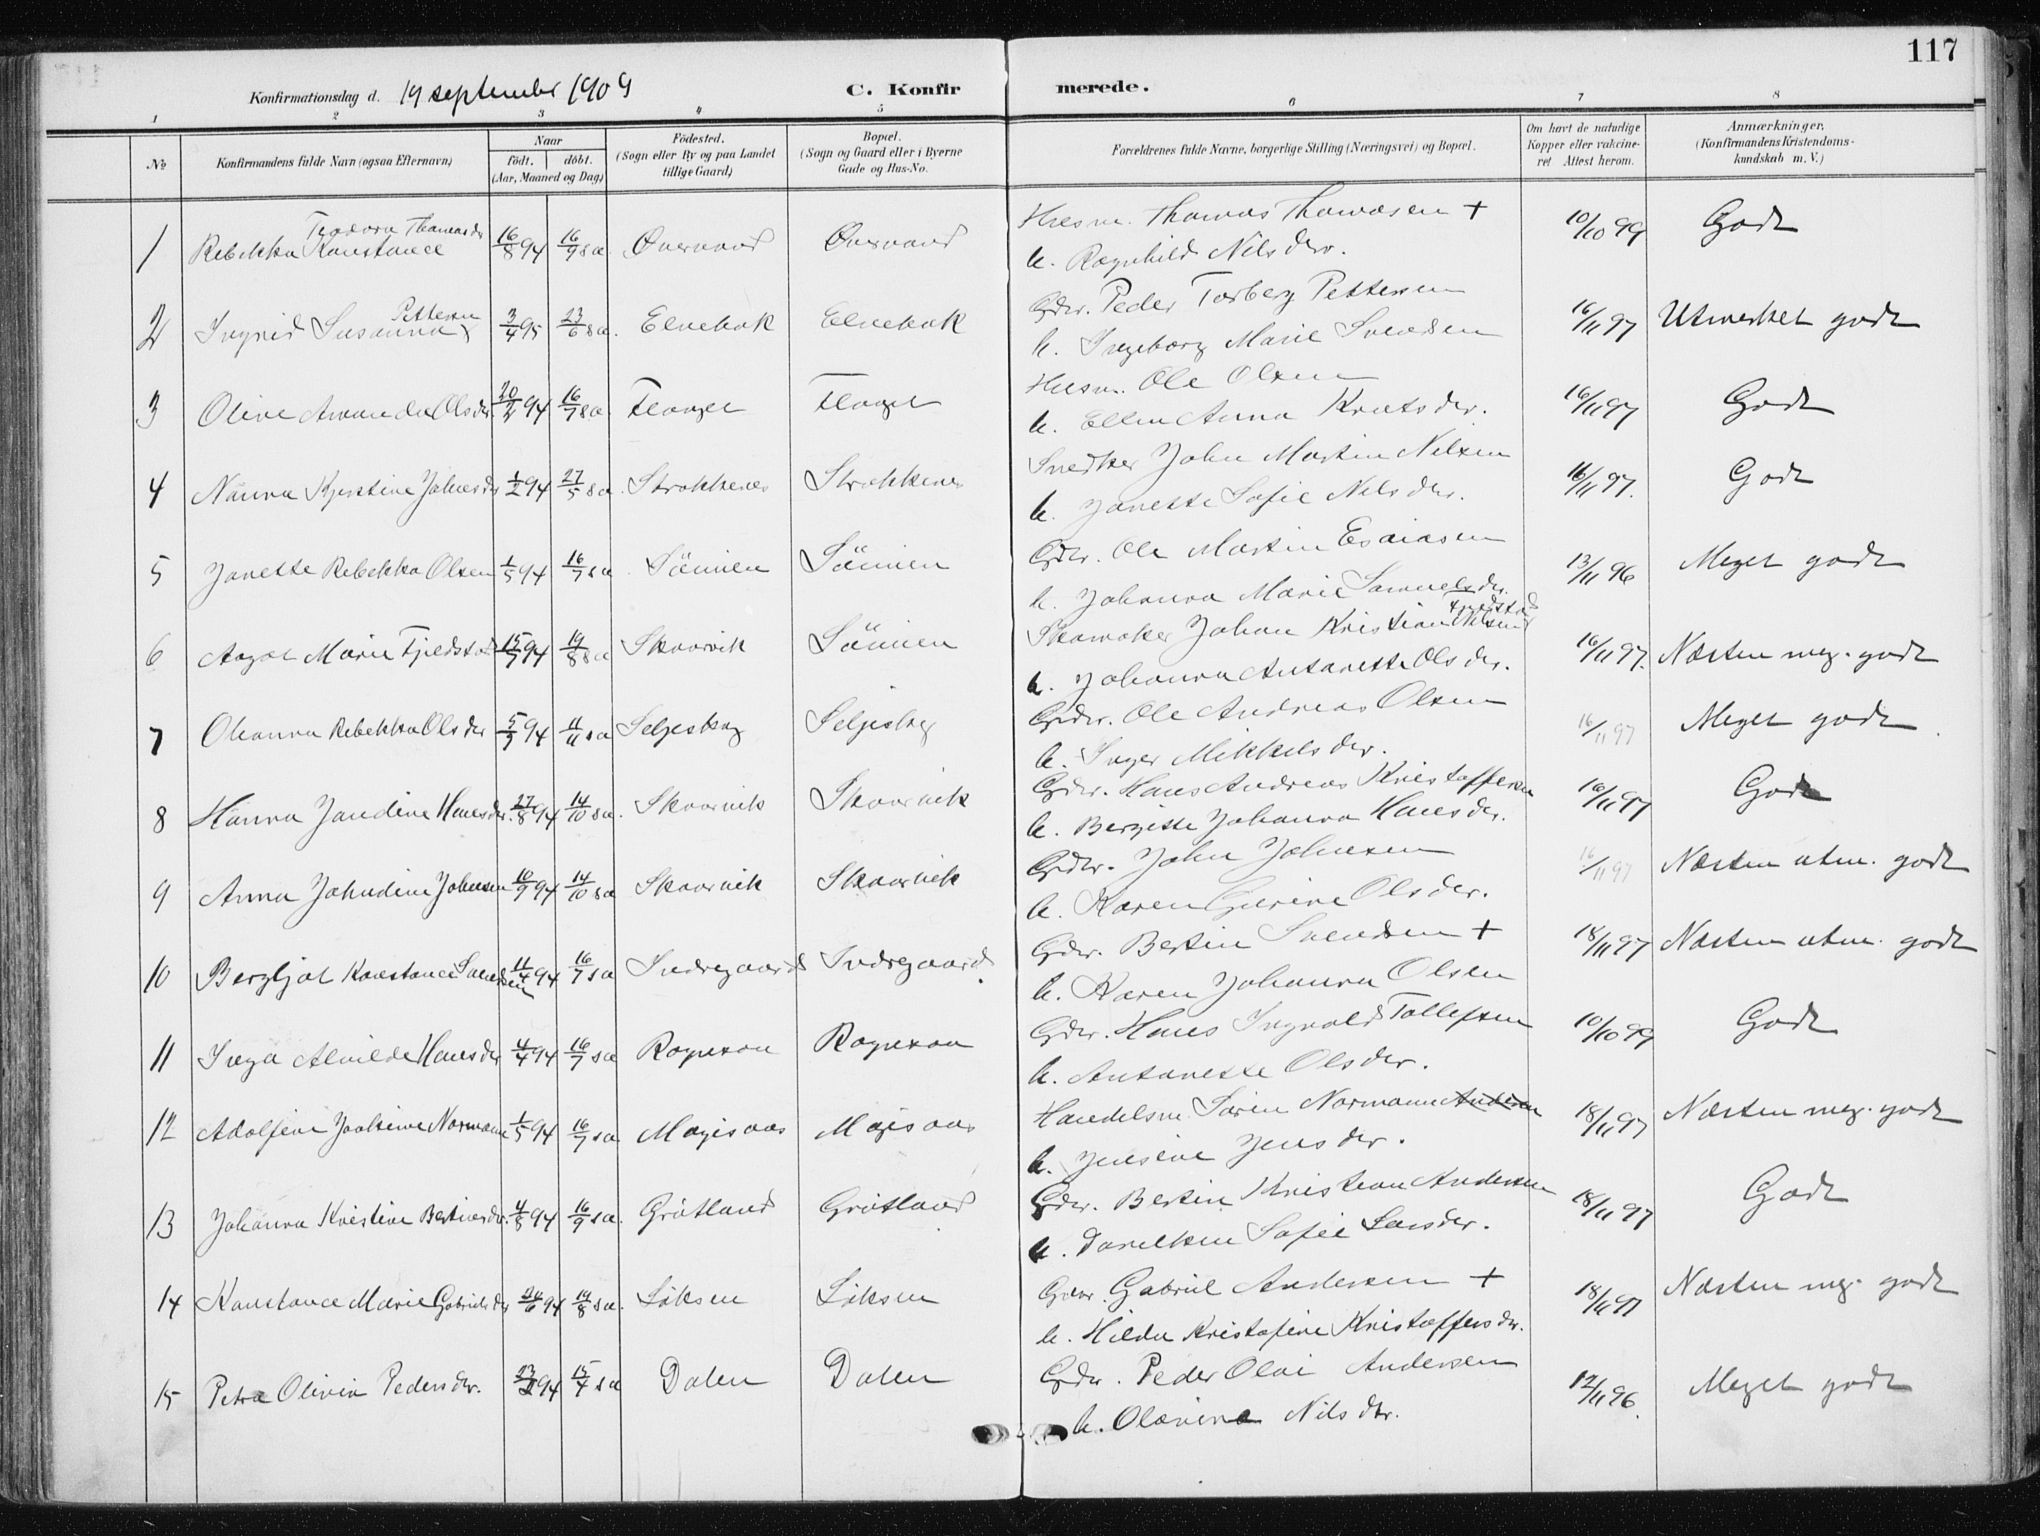 117
Konfirmationsdag d. 19 september 1909 C. Konfirmerede.
1 2 3 4 5 6 7 8
No Konfirmandens fulde Navn (ogsaa Efternavn) Naar født. døbt. (Aar, Maaned og Dag) Fødested. (Sogn eller By og paa Landet tillige Gaard) Bopæl. (Sogn og Gaard eller i Byerne Gade og Hus-No. Forældrenes fulde Navne, borgerlige Stilling (Næringsvei) og Bopæl. Om havt de naturlige Kopper eller vaccineret Attest herom. Anmærkninger. (Konfirmandens Kristendomskundskab m. V.)
1 Rebekka Teodora Konstance Thomasdr 16/8 94 16/9 s a Øvervand Øvervand Husm. Thomas Thomasen + 10/10 99 Godt
h. Ragnhild Nilsdtr.
2 Ingrid Susanna Pettersen 3/4 95 23/6 s a. Elvebak Elvebak Gdr. Peder Torberg Pettersen 16/11 97 Utmerket godt
h. Ingeborg Marie Svendsen
3 Olive Amanda Olsdr. 20/2 94 16/7 s a Flaaget Flaaget Husm. Ole Olsen 16/11 97 Godt
h. Ellen Anna Knutsdr.
4 Nanna Kjerstine Johnsdr 1/2 94 27/5 s a. Strokkenes Strokkenes Snedker John Martin Nilsen 16/11 97. Godt
h. Janette Sofie Nilsdtr.
5 Janette Rebekka Olsen 1/5 94 16/7 s a Sömien Sömien Gdr. Ole Martin Esaiasen 13/11 96 Meget godt
h. Johanna Marie Samuelsdtr.
6 Aagot Marie Fjeldstad 15/7 94 19/8 s a Skaarvik Sömien Skomaker Johan Kristian Nilsen Fjeldstad 16/11 97. Næsten meg. godt
h. Johanna Antanette Olsdtr.
7 Oleanna Rebekka Olsdtr 5/9 94 11/11 s a Seljeskog Seljeskog Gdr. Ole Andreas Olsen 16/11 97 Meget godt
h. Inger Mikkelsdtr.
8 Hanna Jandine Hansdtr. 27/8 94 14/10 s a. Skaarvik Skaarvik Gdr. Hans Andreas Kristoffersen 16/11 97 Godt
h. Bergitte Johanna Hansdr.
9 Anna Johndine Johnsen 10/9 94 14/10 s a Skaarvik Skaarvik Gdr. John Johnsen 16/11 97 Næsten utm. godt
h. Karen Gurine Olsdtr.
10 Bergljot Konstance Svendsen 11/4 94 16/7 s a Indregaard Indregaard. Gdr. Bertin Svendsen + 18/11 97 Næsten utm. godt
h. Karen Johanna Olsen
11 Inga Alvilde Hansdr 4/4 94 16/7 s a Rognson Rognson Gdr. Hans Ingvald Tollefsen 10/10 99 Godt
h. Antanette Olsdtr.
12 Adolfine Joakime Normann 1/5 94 16/7 s a Mogisaas Mogisaas Handelsm Søren Normann Andersen 18/11 97 Næsten meg. godt
h. Jensine Jensdtr.
13 Johanna Kristine Bertinsdr. 4/8 94 16/9 s a. Grötland Grötland Gdr. Bertin Kristian Andersen 18/11 97 Godt
h. Danelksen Sofie Larsdtr.
14 Konstance Marie Gabrielsdr 24/6 94 19/8 s a. Löksen Löksen Gdr. Gabriel Andersen + 18/11 97 Næsten meg. godt
h. Hilda Kristofine Kristoffersdtr.
15 Petra Olivia Pedersdtr. 23/2 94 15/4 s a Dalen Dalen Gdr. Peder Olai Andersen 12/11 96. Meget godt
h. Olavina Nilsdtr.